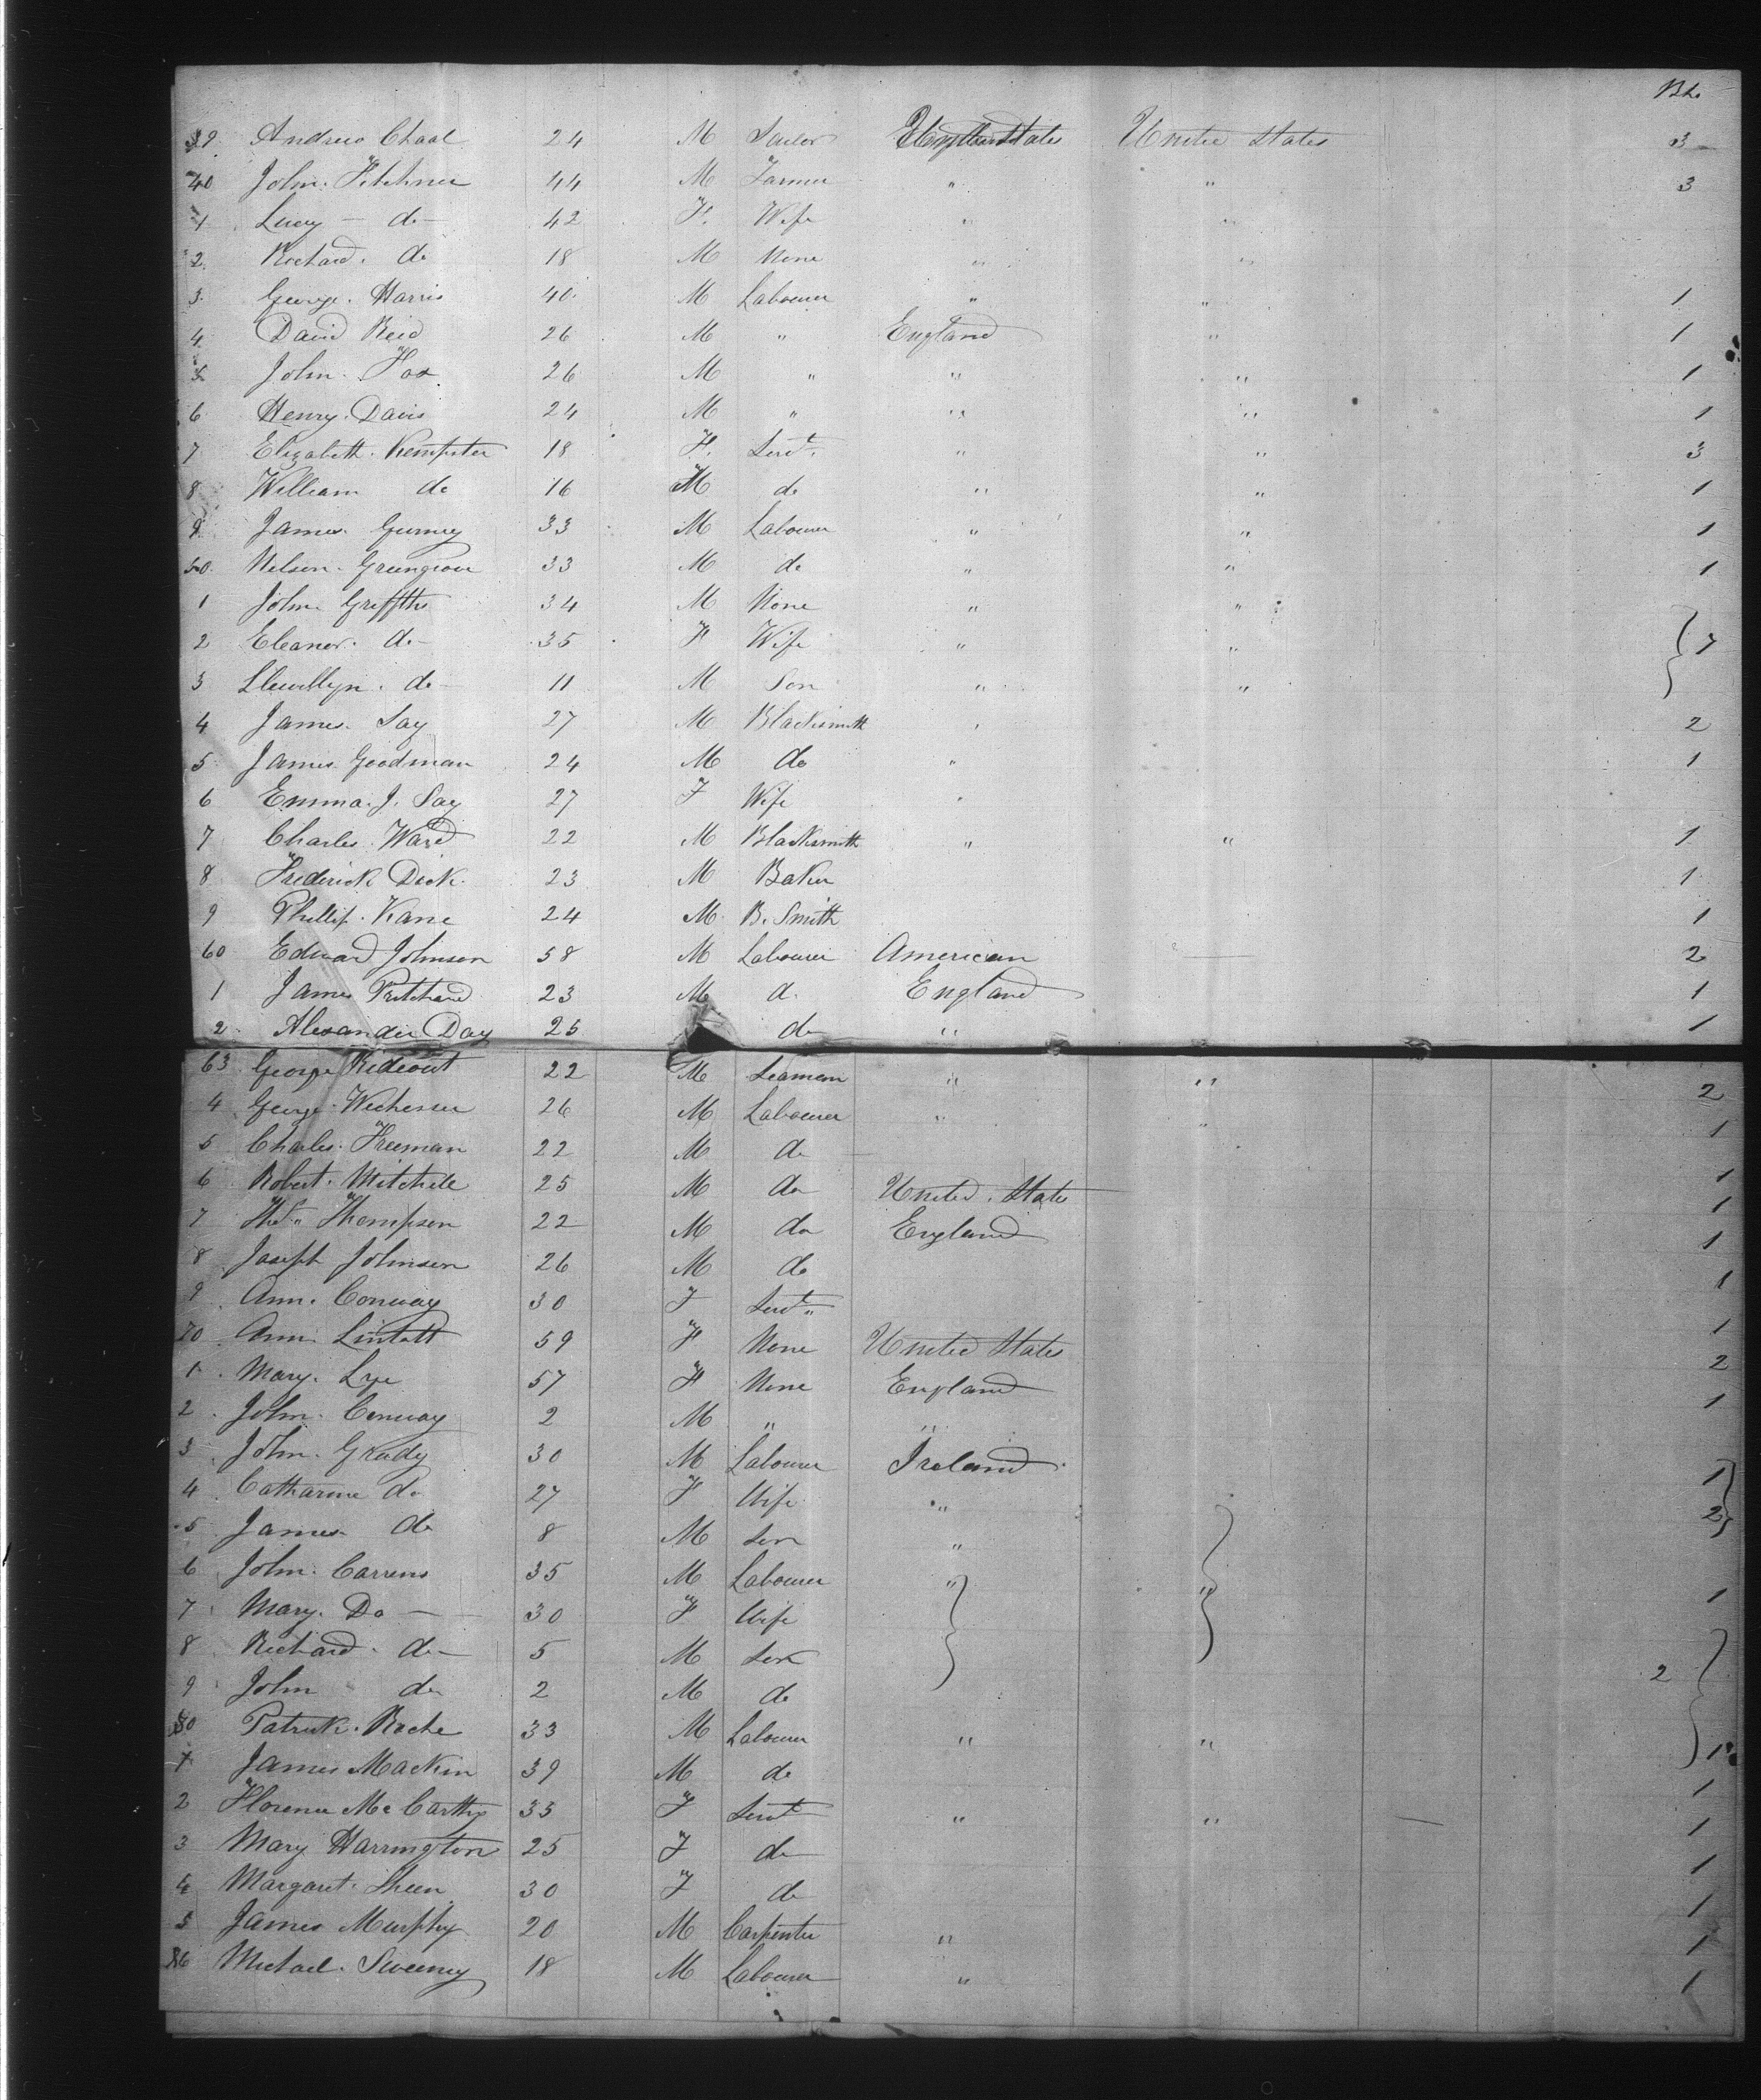 Bls
39 Andrew Chaal 24 M Tailor United States 3
40 John. Fitchner 44 M Farmer " " 3
1 Lucy - do - 42 F. Wife " "
2 Richard. do 18 M None " "
3. George. Harris 40. M Labourer " " 1
4 David Reid 26 M " England " 1
5 John. Fox. 26 M " " " 1
6 Henry. Davis 24 M " " " 1
7 Elizabeth. Kempster 18 F. Servt. " " 3
8 William do 16 M do " " 1
9 James. Gurney 33 M Labourer " " 1
50. Nelson. Greengrove 33 M do " " 1
1 John. Griffths 34 M None " "
2 Eleanor. do - 35 F Wife " " 7
3 Llewellyn. do - 11 M Son " "
4 James. Say 27 M Blacksmith " 2
5 James Goodman 24 M do " 1
6 Emma. J. Say 27 F Wife "
7 Charles. Ward 22 M Blacksmith " " 1
8 Frederick Dick. 23 M Baker 1
9 Phillip. Kane 24 M. B. Smith 1
60 Edward Johnson 58 M Labourer American — 2
1 James Pritchard 23 M do England 1
2 Alexander Day 25 do " 1
63 George Rideout 22 M Seaman " " 2
4 George. 26 M Labourer " " 1
5 Charles. Freeman 22 M do
6 Robert. Mitchele 25 M do United. States 1
7 Thos. Thompson 22 M do England 1
8 Joseph Johnson 26 M do 1
9 Ann. Conway 30 F Servt. 1
70 Ann. Lintott 59 F None United States 1
1 Mary. Lye 57 F None England 2
2 John. Conway 2 M " " 1
3 John. Grady 30 M Labourer Ireland.
4 Catharine do 27 F Wife " 1
5 James do 8 M Son " 2
6 John. Carrens 35 M Labourer " "
7 Mary. Do — 30 F Wife 1
8 Richard. do - 5 M Son
9 John do 2 M do 2
80 Patrick. Roche 33 M Labourer " "
1 James Mackin 39 M do 1
2 Florence McCarthy 35 F Servt " " — 1
3 Mary Harrington 25 F do 1
4 Margaret. Sheen 30 F do 1
5 James Murphy 20 M Carpenter " 1
86 Michael. Sweeney 18 M Labourer " 1
1